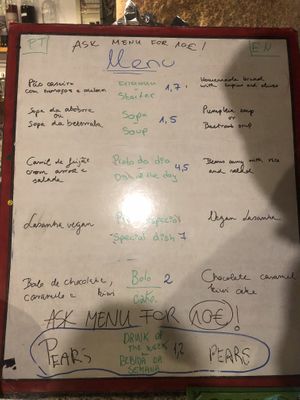 PT ASK MENU FOR 10€! EN
Menu
Pão caseiro Entrada Homemade bread
com tremoços e azeitonas Starter 1,7 with lupins and olives
Sopa da abóbora Sopa 1,5 Pumpkin soup
ou Soup or
Sopa de beterraba Beetroot soup
Caril de feijão Prato do dia 4,5 Beans curry with rice
com arroz e Dish of the day and salad
salada
Lasanha vegan special Vegan Lasanha
Special dish 7
Bolo de chocolate, Bolo 2 Chocolate caramel
caramelo e kiwi Cake kiwi cake
ASK MENU FOR 10€!
PEARS DRINK OF 1,2 PEARS
THE WEEK
BEBIDA DA
SEMANA